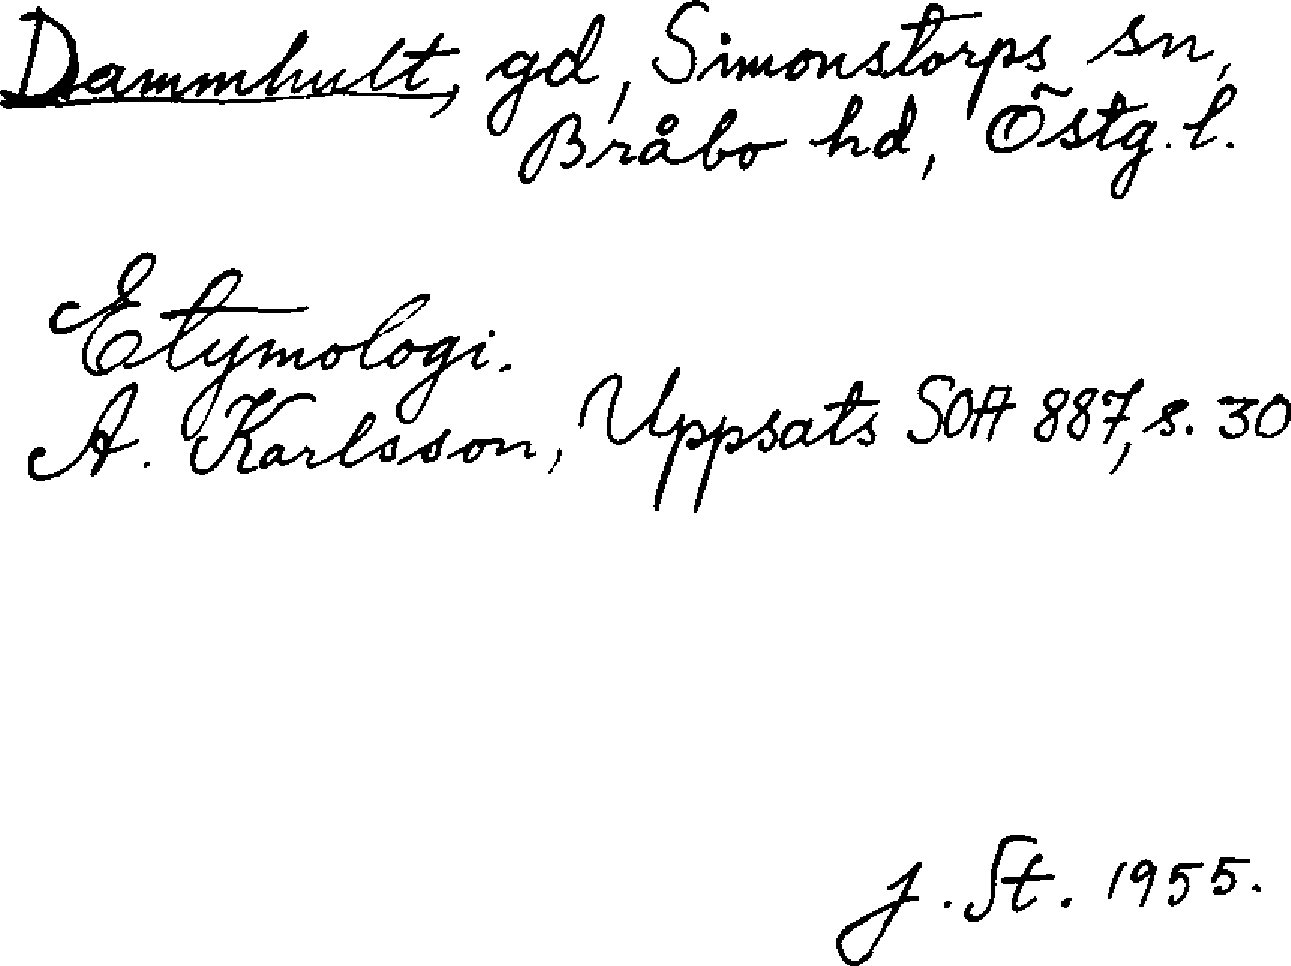 Dammhult, gd, Simonstorps sn,
Bråbo hd, Östg. l.
Etymologi.
A. Karlsson, Uppsats SOA 887, s. 30
J. St. 1955.